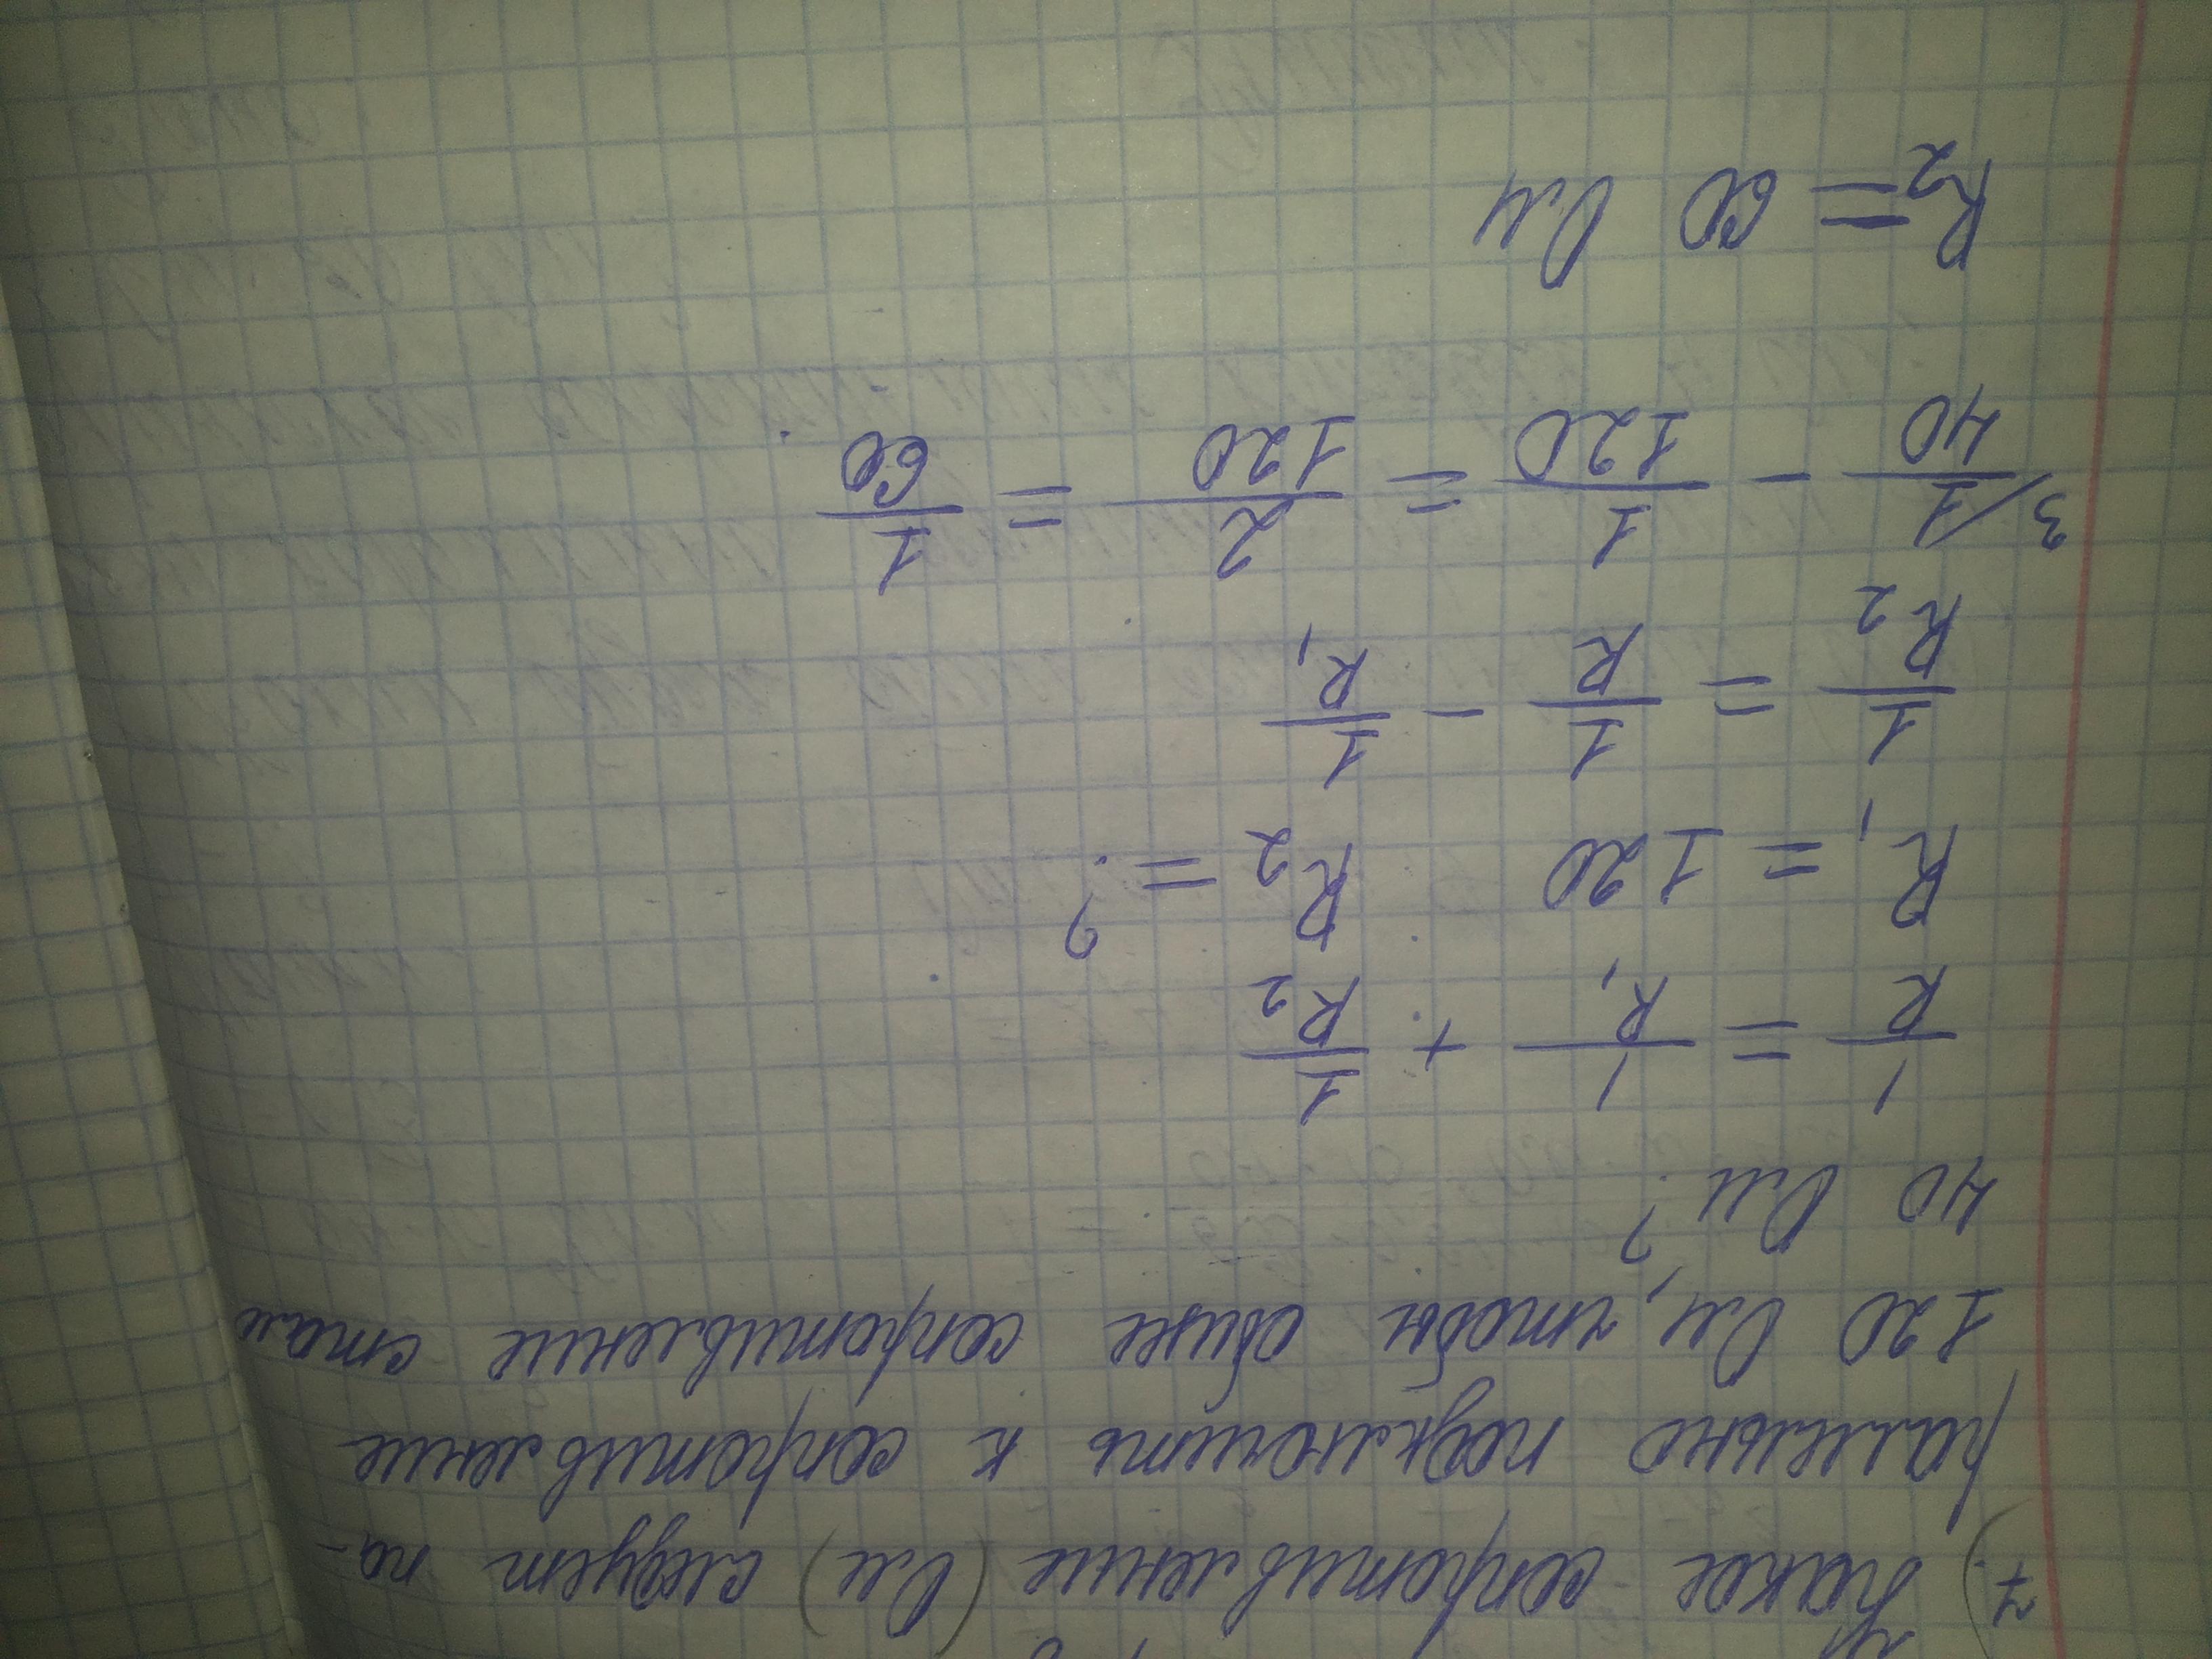 7) Какое сопротивление (Ом) следует па-
раллельно подключить к сопротивление
120 Ом, чтобы общее сопротивление стало
40 Ом?
1/R = 1/R₁ + 1/R₂
R₁ = 120 R₂ = ?
1/R₂ = 1/R - 1/R₁
3/ 1/40 - 1/120 = 2/120 = 1/60
R₂ = 60 Ом